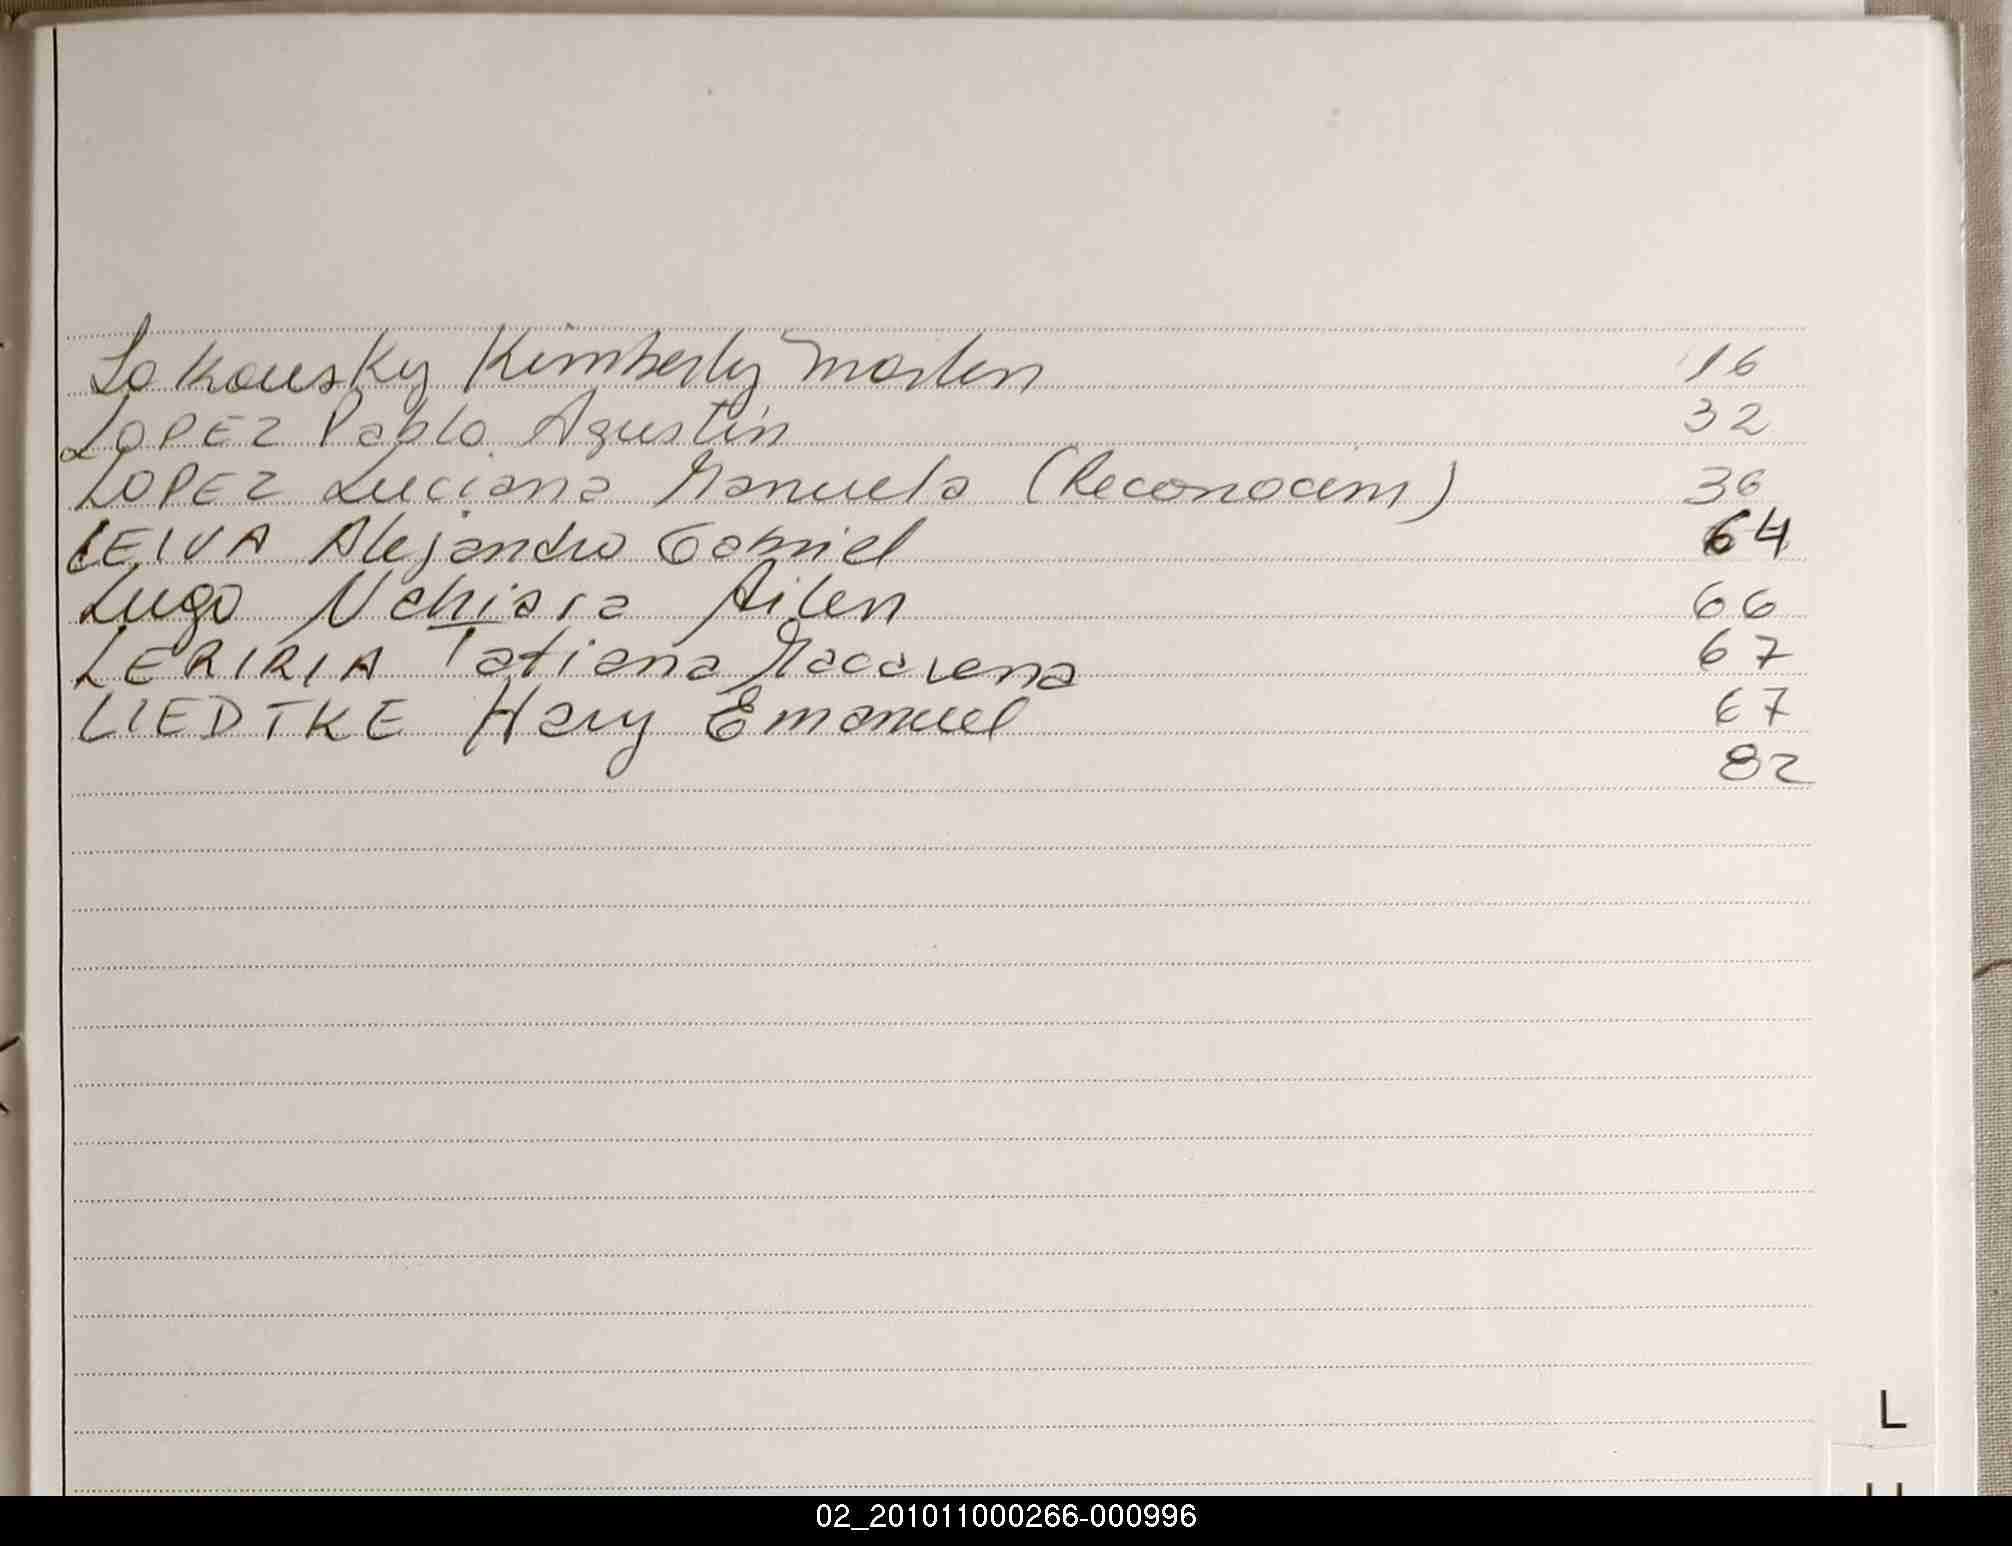 Lokousky Kimberly Marlen 16
LOPEZ Pablo Agustin 32
LOPEZ Luciana Manuela (Reconocim) 36
LEIVA Alejandro Gabriel 64
Lugo Nchiara Ailen 66
LERIRIA Tatiana Macarena 67
LIEDTKE Hary Emanuel 67
82
L
02_201011000266-000996